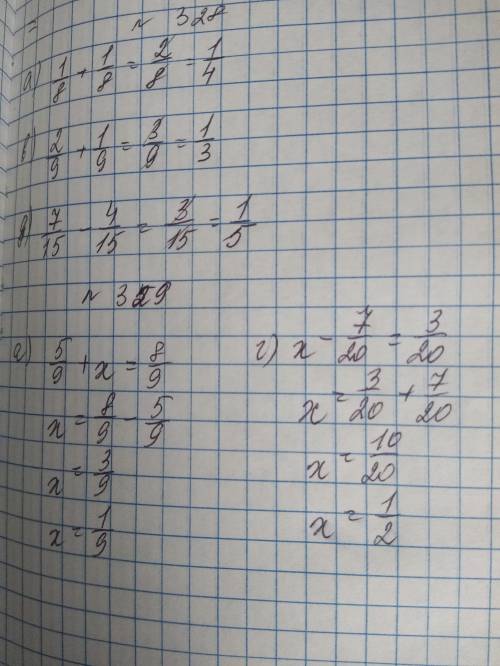 № 328
а) 1/8 + 1/8 = 2/8 = 1/4
в) 2/9 + 1/9 = 3/9 = 1/3
д) 7/15 - 4/15 = 3/15 = 1/5
№ 329
а) 5/9 + x = 8/9
x = 8/9 - 5/9
x = 3/9
x = 1/9
г) x - 7/20 = 3/20
x = 3/20 + 7/20
x = 10/20
x = 1/2